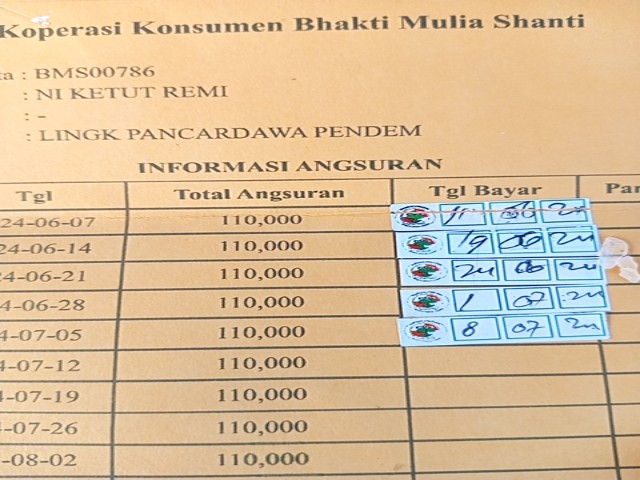 Koperasi Konsumen Bhakti Mulia Shanti
ta : BMS00786
: NI KETUT REMI
: -
: LINGK PANCARDAWA PENDEM
INFORMASI ANGSURAN
Tgl Total Angsuran Tgl Bayar Par
24-06-07 110,000 11 06 24
24-06-14 110,000 19 06 24
4-06-21 110,000 24 06 24
4-06-28 110,000 1 07 24
4-07-05 110,000 8 07 24
4-07-12 110,000
4-07-19 110,000
-07-26 110,000
-08-02 110,000